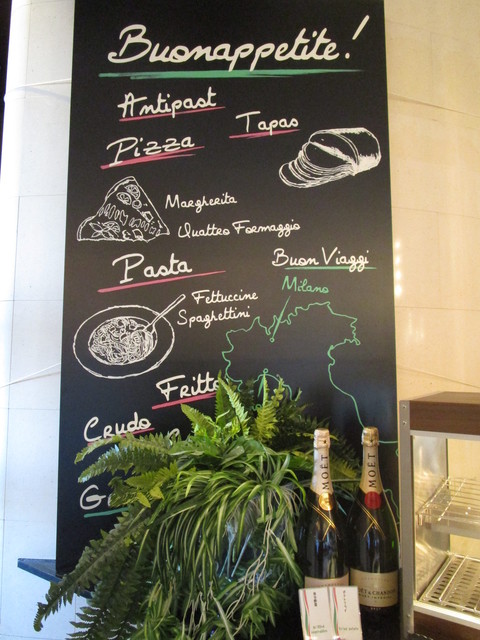 Buonappetite!
Antipast
Tapas
Pizza
Margherita
Quattro Formaggio
Pasta
Buon Viaggi
Milano
Fettuccine
Spaghettini
Fritto
Crudo
MOËT
MOËT